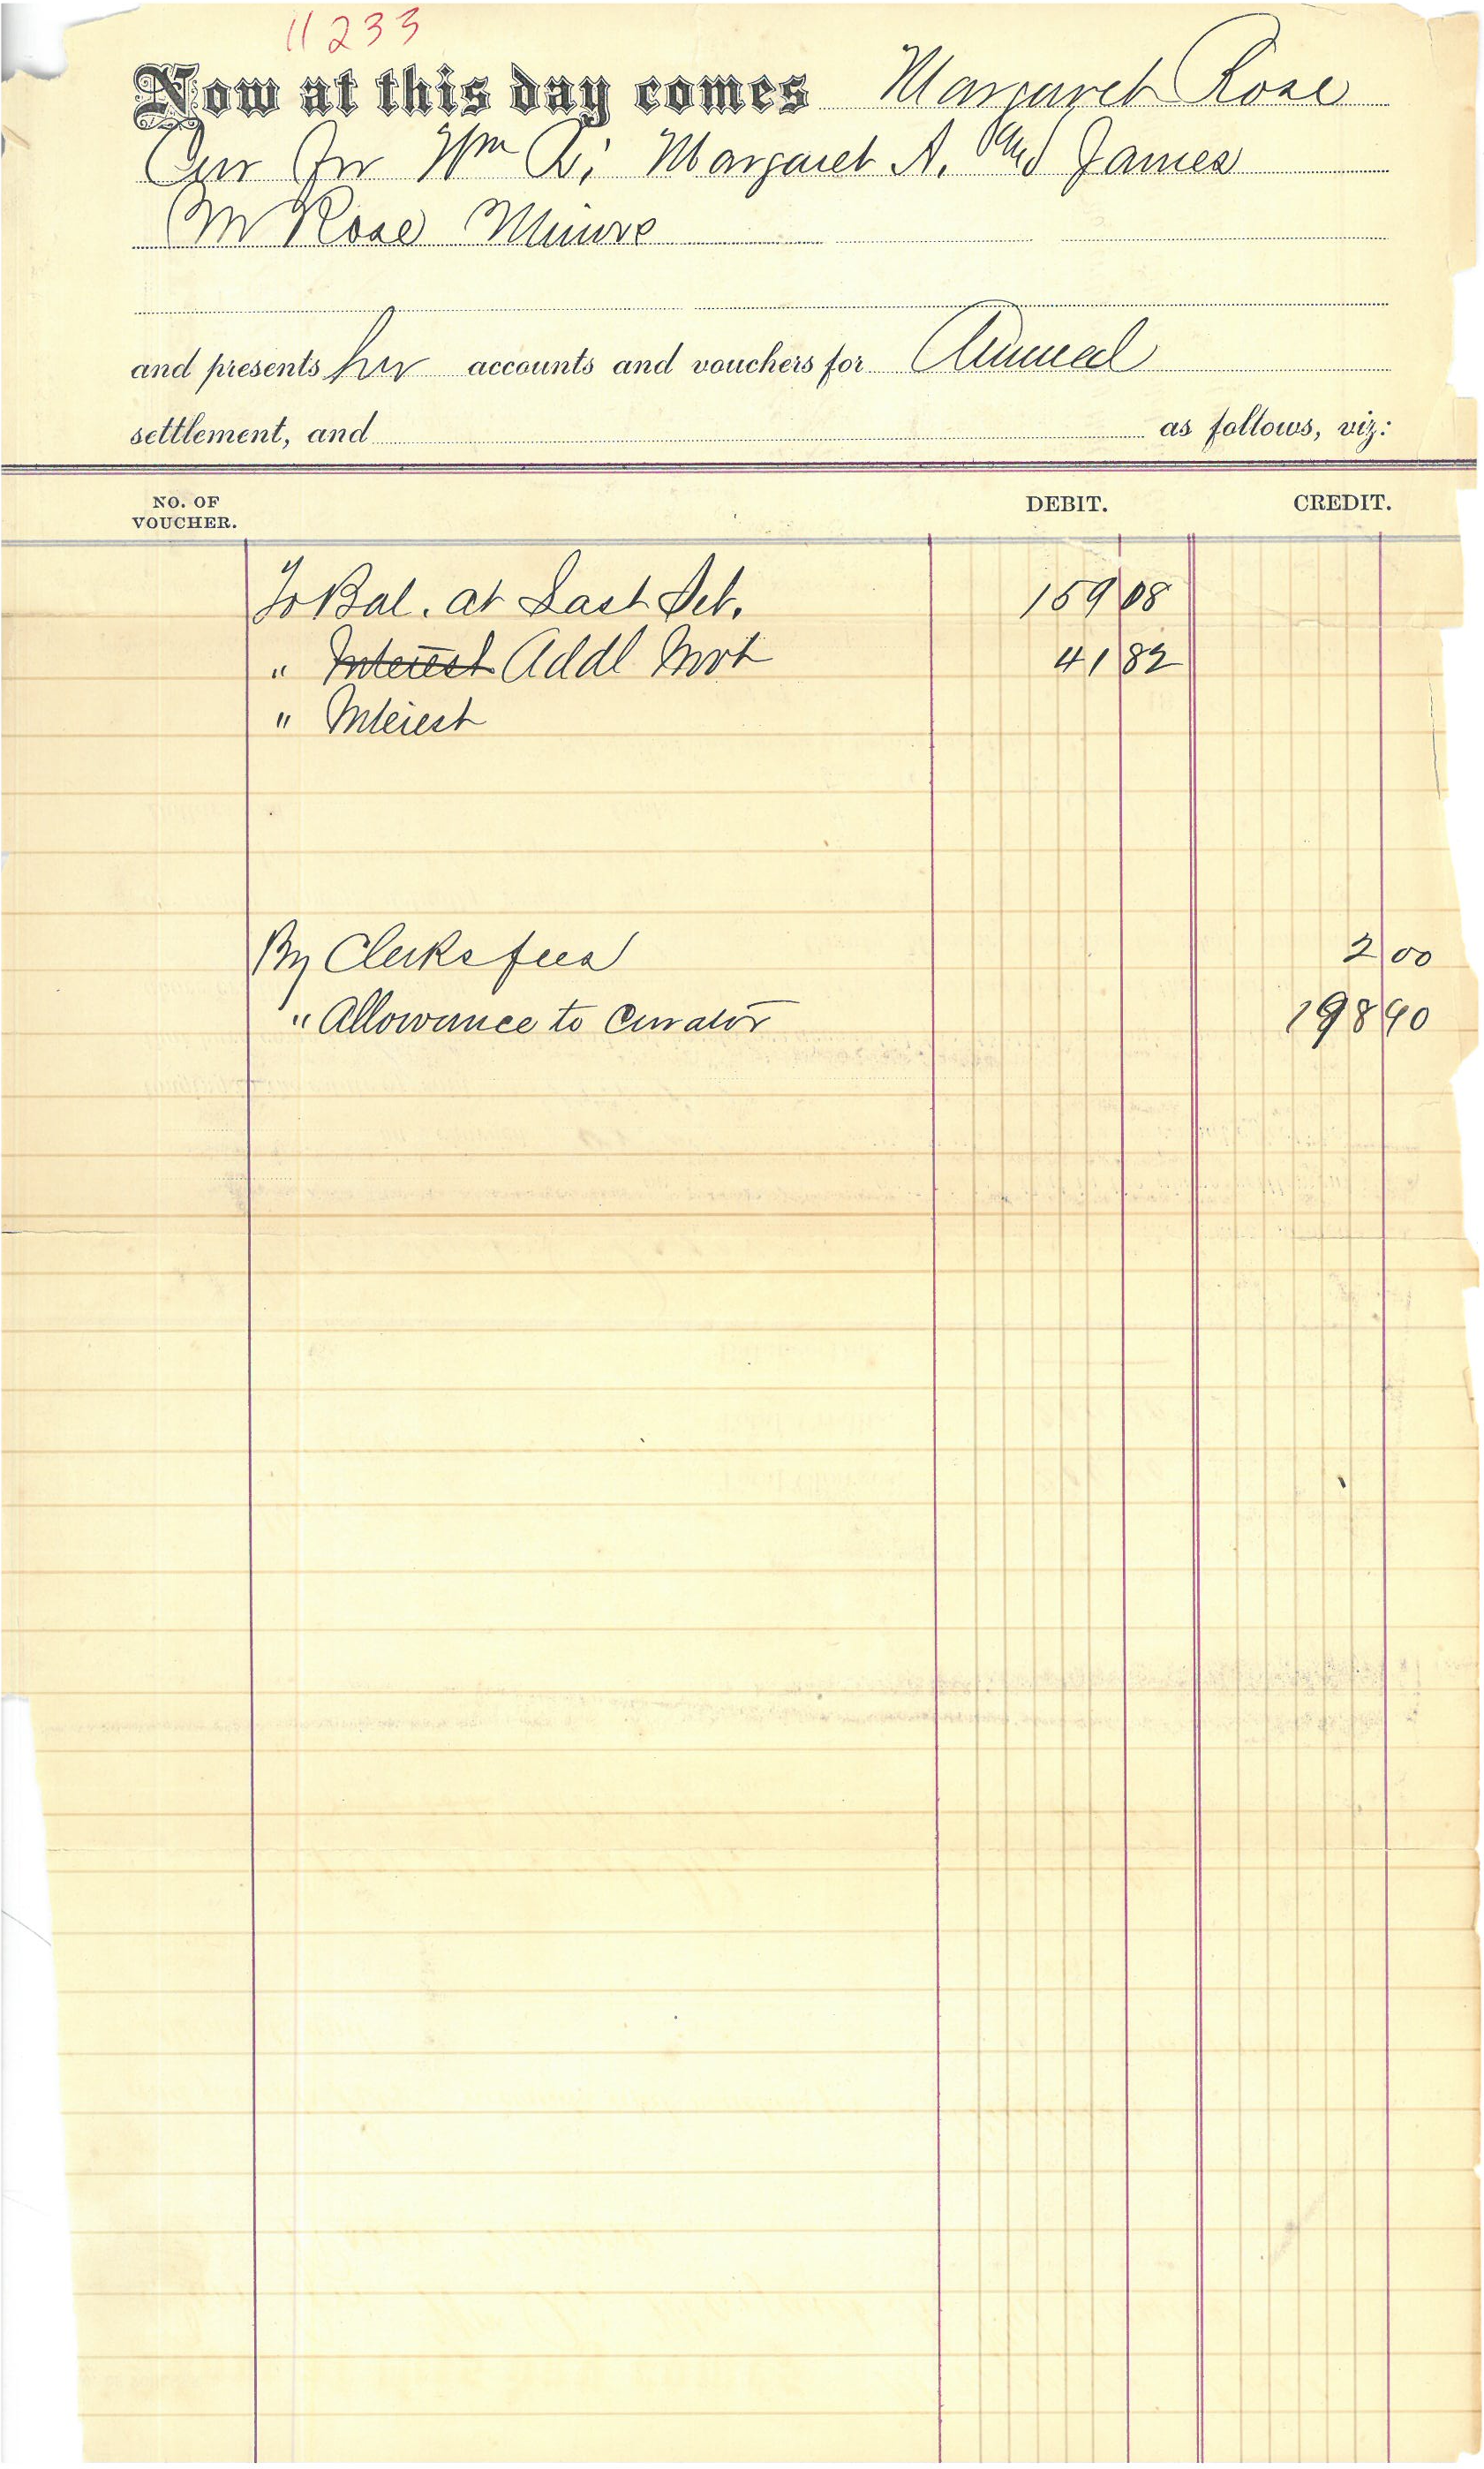 11233
Now at this day comes Margaret Rose
Cur for Wm R; Margaret A. and James
M Rose Minors
and presents her accounts and vouchers for Annual
settlement, and as follows, viz:
NO. OF VOUCHER. DEBIT. CREDIT.
To Bal. at Last Set. 159 08
" Interest Addl Invt 41 82
" Interest
By Clerks fees 2 00
" Allowance to Curator 198 90